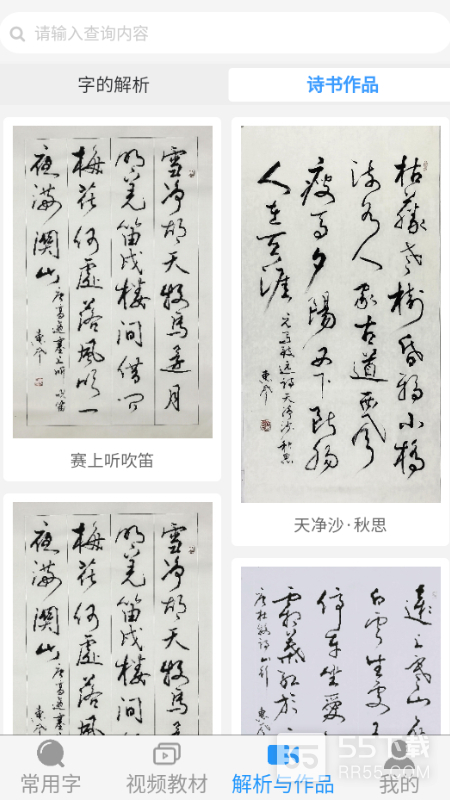 请输入查询内容
字的解析
诗书作品
雪净胡天牧马还月
明羌笛戍楼间借问
梅花何处落风吹一
夜满关山
唐高适塞上听吹笛
赛上听吹笛
枯藤老树昏鸦小桥
流水人家古道西风
瘦马夕阳西下断肠
人在天涯
元马致远词天净沙秋思
天净沙·秋思
雪净胡天牧马还月
明羌笛戍楼间借
梅花何处落风
夜满关山
唐高适
远上寒山
白云生处
停车坐爱
霜叶红于
唐杜牧诗山行
55下载
RR55.COM
常用字
视频教材
解析与作品
我的